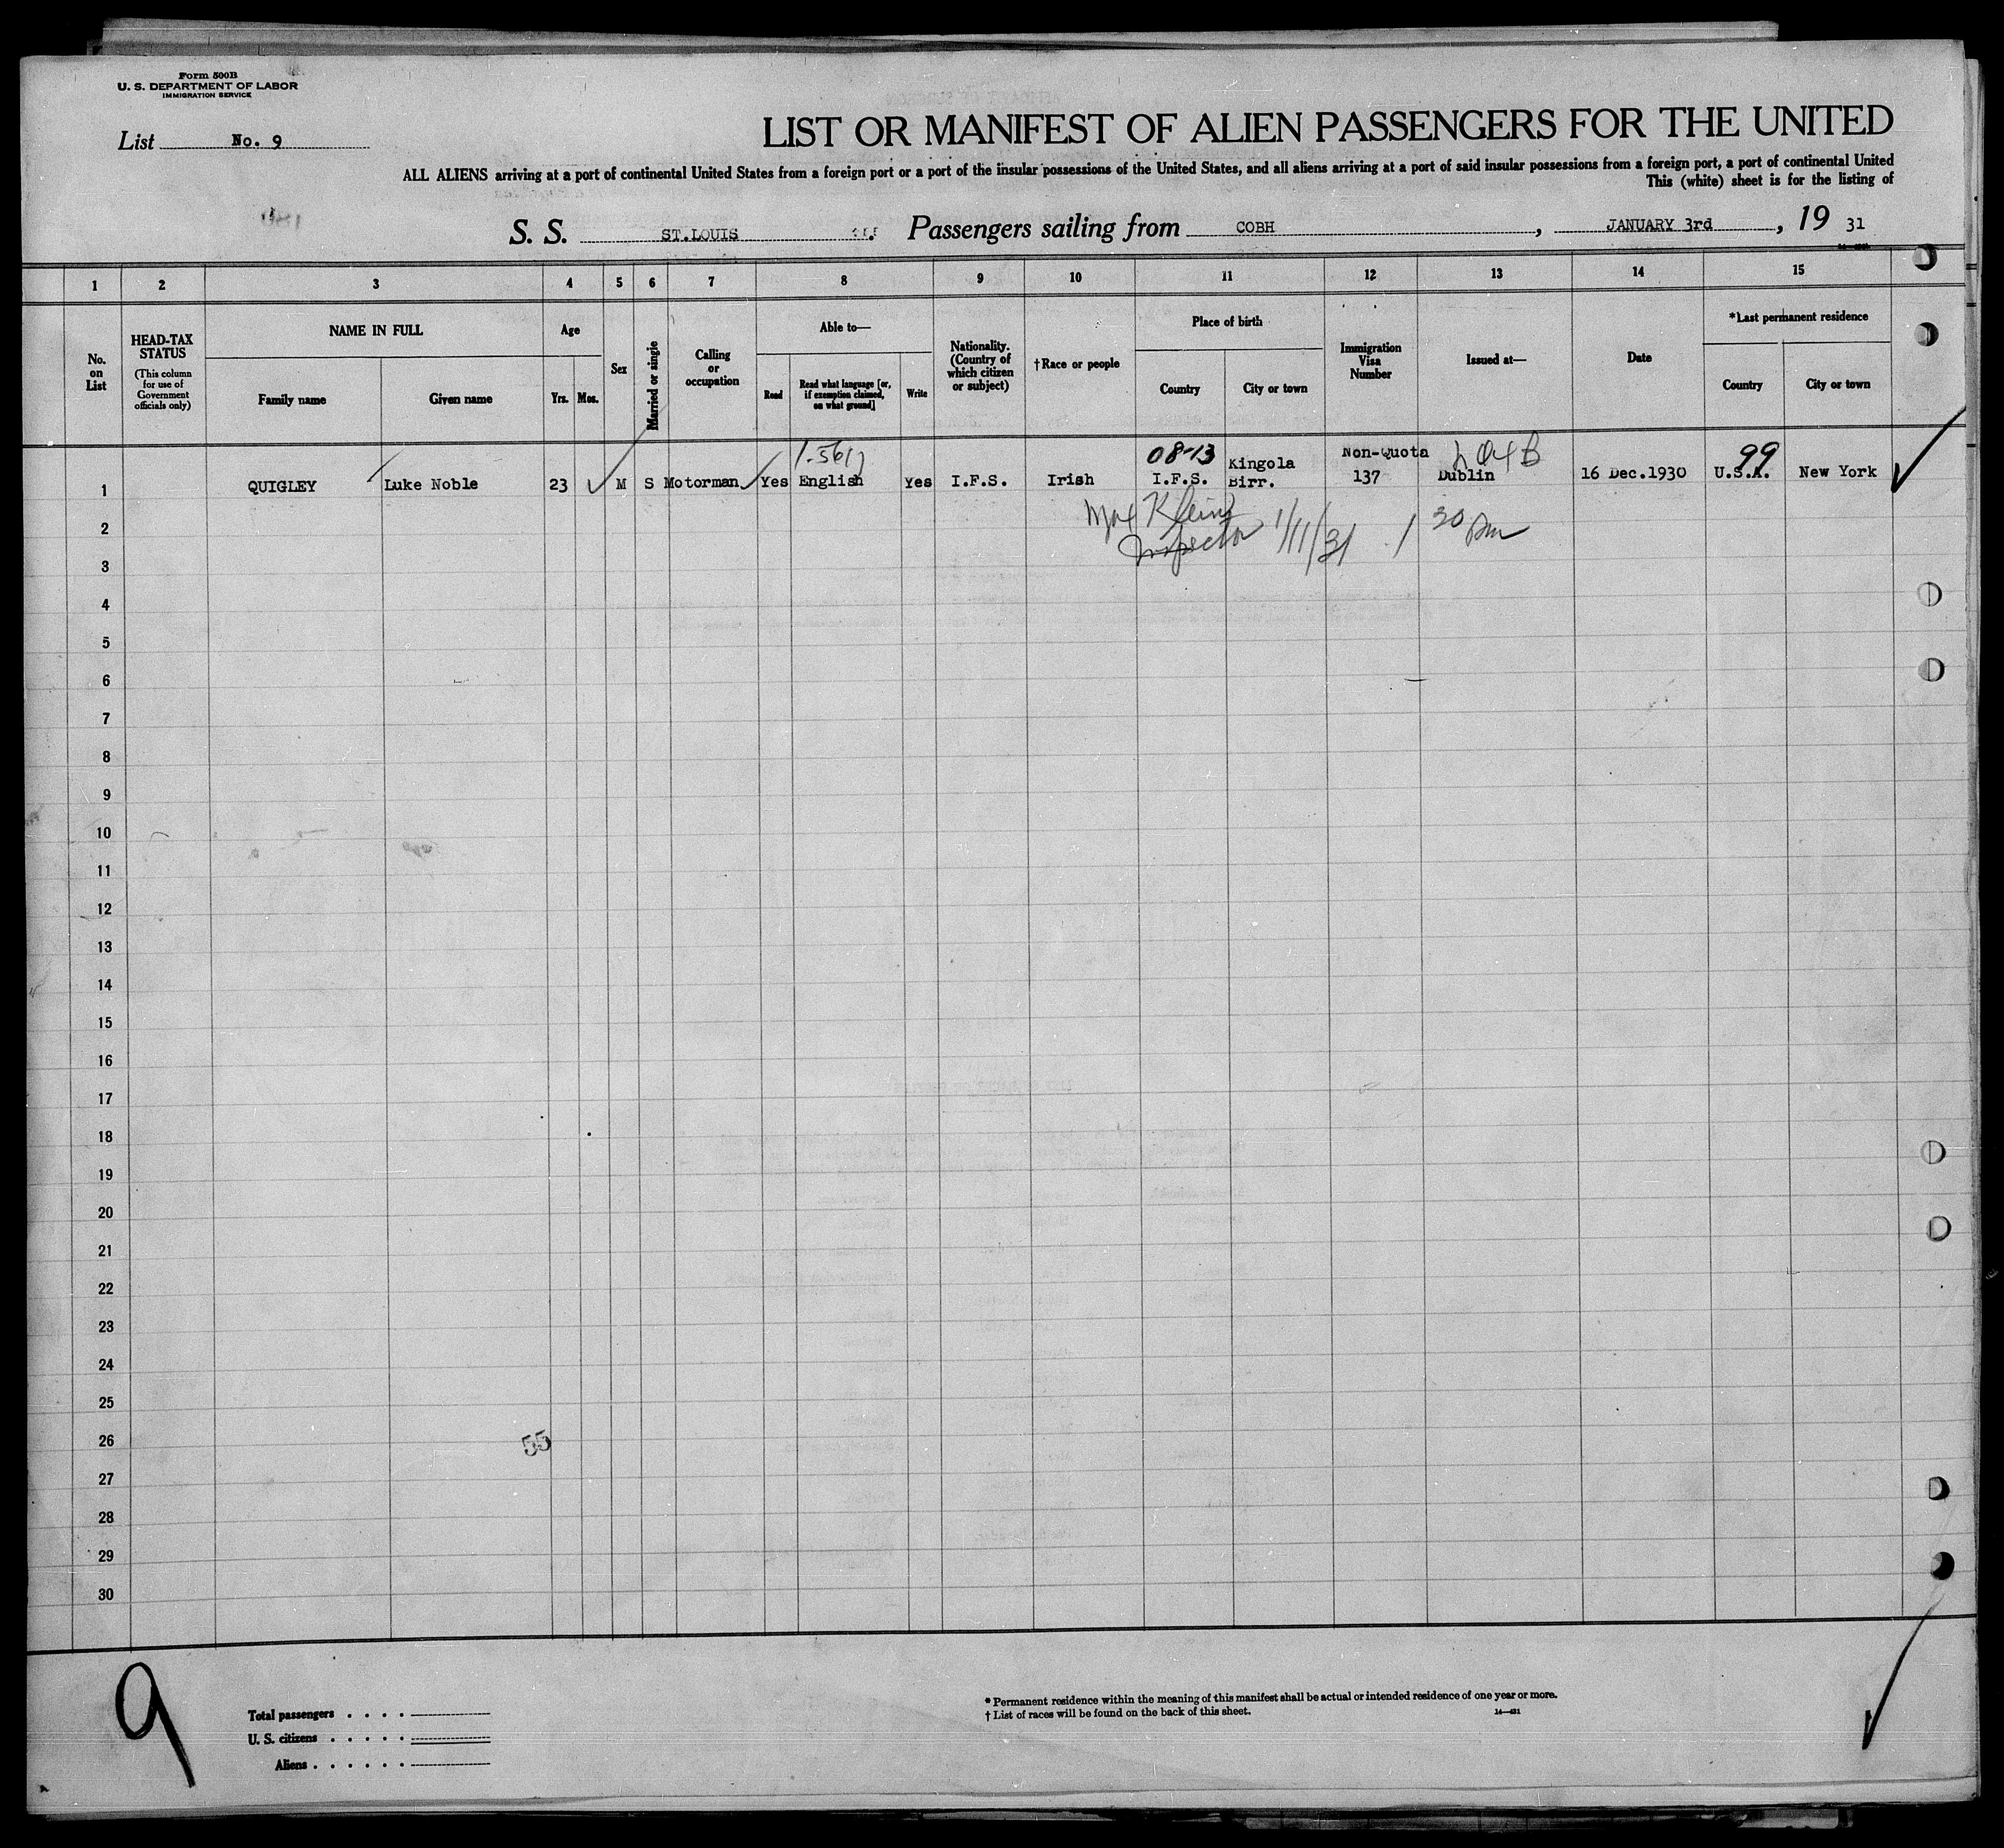 Form 500B
U. S. DEPARTMENT OF LABOR
IMMIGRATION SERVICE
List No. 9
LIST OR MANIFEST OF ALIEN PASSENGERS FOR THE UNITED
ALL ALIENS arriving at a port of continental United States from a foreign port or a port of the insular possessions of the United States, and all aliens arriving at a port of said insular possessions from a foreign port, a port of continental United
This (white) sheet is for the listing of
S. S. ST.LOUIS Passengers sailing from COBH , JANUARY 3rd , 19 31
1 2 3 4 5 6 7 8 9 10 11 12 13 14 15
No. on List
HEAD-TAX STATUS
(This column for use of Government officials only)
NAME IN FULL
Family name
Given name
Age
Yrs.
Mos.
Sex
Married or single
Calling or occupation
Able to—
Read
Read what language [or, if exemption claimed, on what ground]
Write
Nationality. (Country of which citizen or subject)
†Race or people
Place of birth
Country
City or town
Immigration Visa Number
Issued at—
Date
*Last permanent residence
Country
City or town
08-13 Non-Quota 99
1 QUIGLEY Luke Noble 23 M S Motorman Yes English Yes I.F.S. Irish I.F.S. Kingola Birr. 137 Dublin 16 Dec.1930 U.S.A. New York
Max Klein
Inspector 1/11/31 1 30 pm
2
3
4
5
6
7
8
9
10
11
12
13
14
15
16
17
18
19
20
21
22
23
24
25
26
55
27
28
29
30
9
Total passengers . . . .
U. S. citizens . . . . .
Aliens . . . . . .
* Permanent residence within the meaning of this manifest shall be actual or intended residence of one year or more.
† List of races will be found on the back of this sheet.